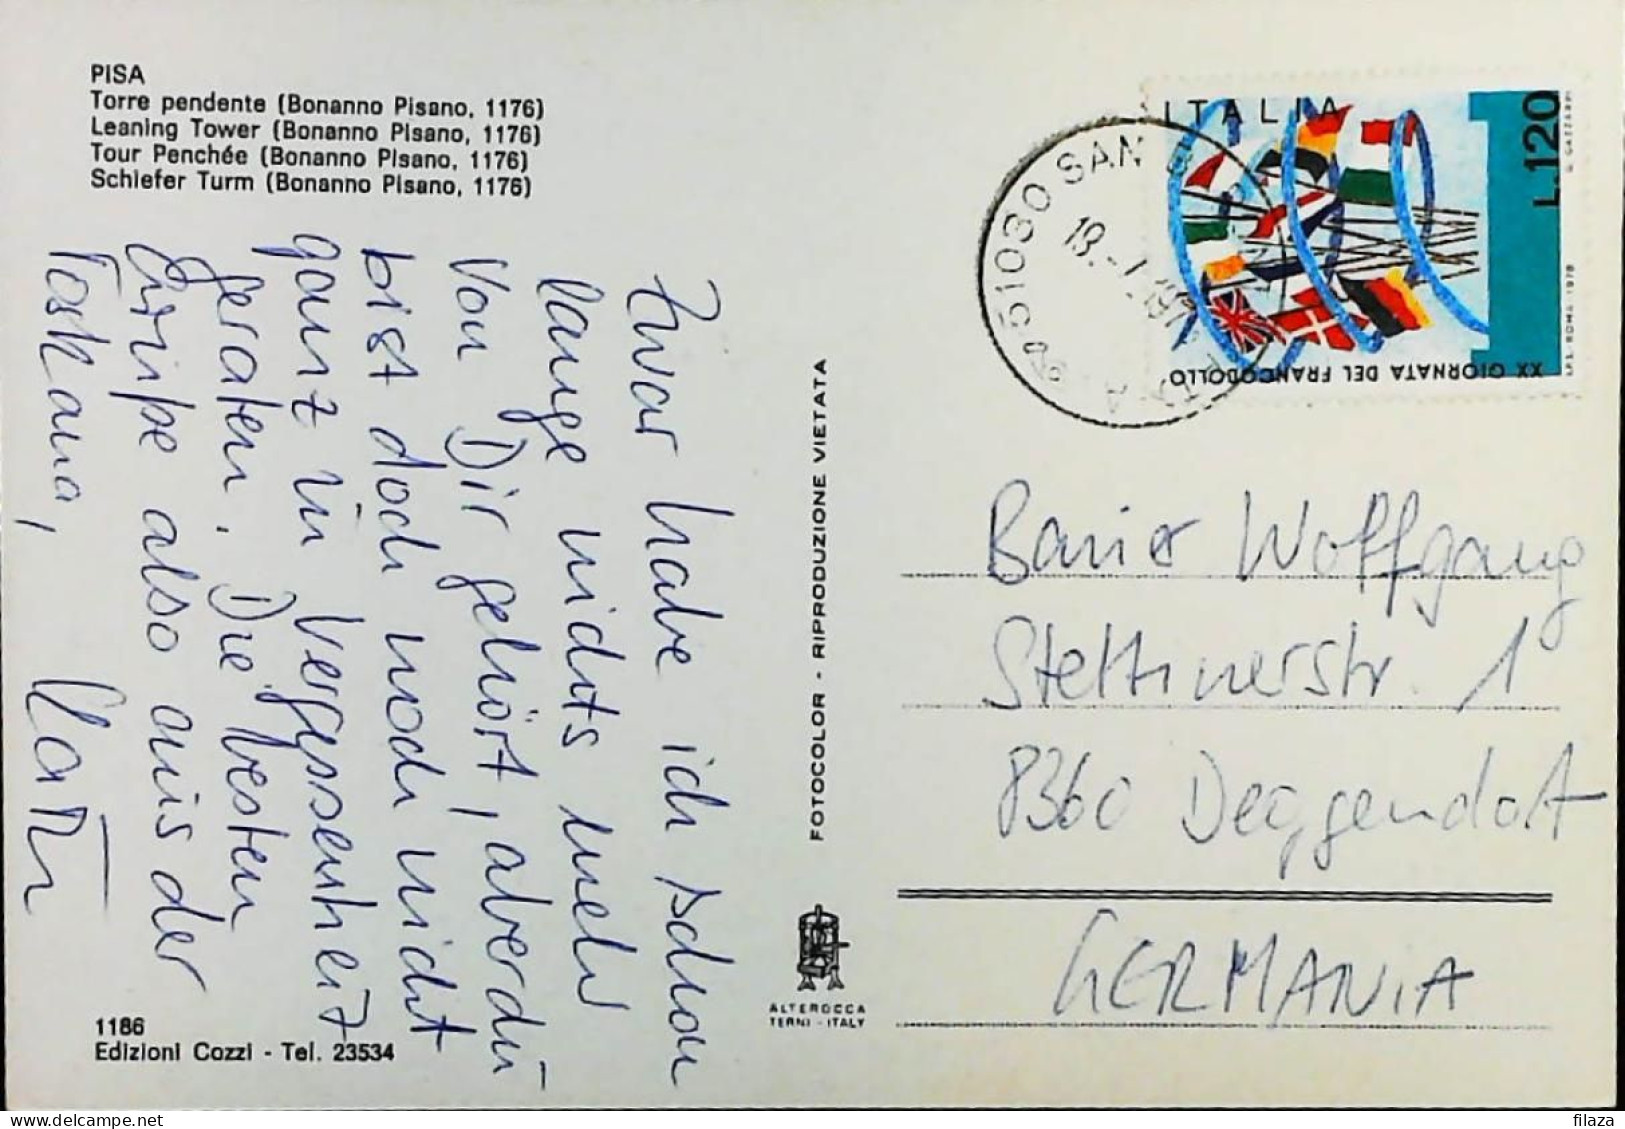 PISA
Torre pendente (Bonanno Pisano, 1176)
Leaning Tower (Bonanno Pisano, 1176)
Tour Penchée (Bonanno Pisano, 1176)
Schiefer Turm (Bonanno Pisano, 1176)
Zwar habe ich schon
lange nichts mehr
von Dir gehört, aber du
bist doch noch nicht
ganz in Vergessenheit
geraten. Die besten
Grüße also aus der
Toskana,
Kathi
1186
Edizioni Cozzi - Tel. 23534
FOTOCOLOR - RIPRODUZIONE VIETATA
ALTEROCCA
TERNI - ITALY
ITALIA
L.120
XX GIORNATA DEL FRANCOBOLLO
I.P.S. ROMA-1978
G. GAZZARRI
51030 SAN
Wolfgang
Stettinerstr. 1
8360 Deggendorf
GERMANIA
filaza